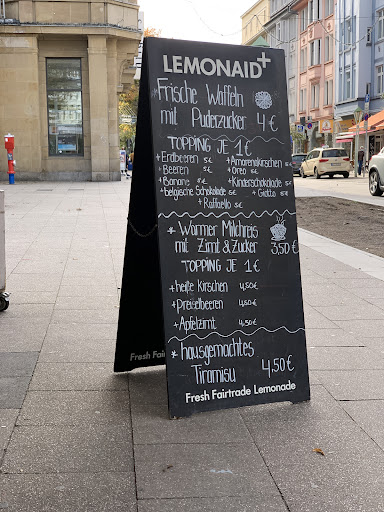 LEMONAID+
*Frische Waffeln
mit Puderzucker 4€
TOPPING JE 1€
+Erdbeeren 5€ +Amarenakirschen 5€
+Beeren 5€ +Oreo 5€
+Banane 5€ +Kinderschokolade 5€
+belgische Schokolade 5€ +Giotto 5€
+Raffaello 5€
*Warmer Milchreis
mit Zimt & Zucker 3,50€
TOPPING JE 1€
+heiße Kirschen 4,50€
+Preiselbeeren 4,50€
+Apfelzimt 4,50€
*hausgemachtes
Tiramisu 4,50€
Fresh Fairtrade Lemonade
Fresh Fair